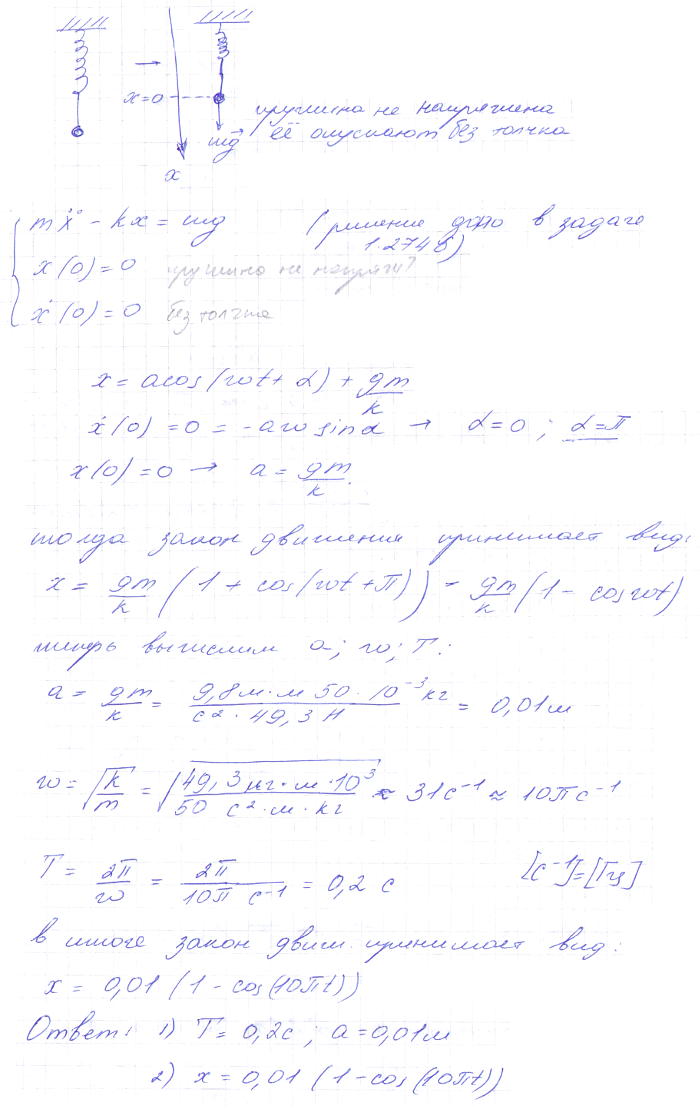 x=0
mg
x
пружина не напряжена
её опускают без толчка
mẍ - kx = mg (решение дано в задаче
1.274б)
x(0)=0 пружина не напряж?
ẋ(0)=0 без толчка
x = acos(wt+α) + gm/k
ẋ(0) = 0 = -aw sinα → α=0 ; α=π
x(0)=0 → a = gm/k.
тогда закон движения принимает вид:
x = gm/k (1 + cos(wt+π)) = gm/k (1 - coswt)
теперь вычислим a; w; T:
a = gm/k = 9,8м·м 50·10⁻³кг / с²·49,3Н = 0,01м
w = √k/m = √49,3кг·м·10³ / 50 с²·м·кг ≈ 31с⁻¹ ≈ 10πс⁻¹
T = 2π/w = 2π/10π с⁻¹ = 0,2 с [с⁻¹]=[Гц]
в итоге закон движ. принимает вид:
x = 0,01 (1 - cos(10πt))
Ответ: 1) T = 0,2с ; a = 0,01м
2) x = 0,01 (1-cos(10πt))